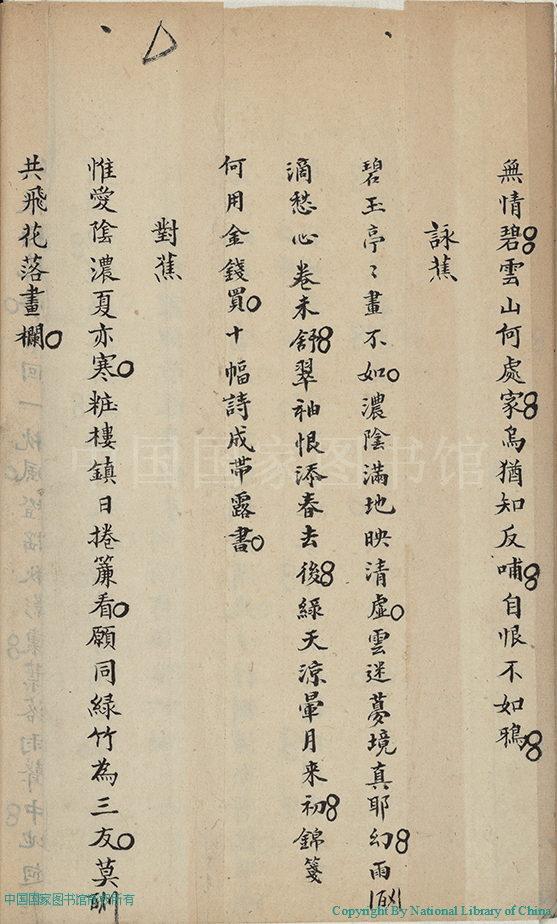 無情碧雲山何處家烏猶知反哺自恨不如鴉
詠蕉
碧玉亭〻畫不如濃陰滿地映清虛雲迷夢境真耶幻雨
滴愁心卷未舒翠袖恨添春去後綠天涼暈月来初錦箋
何用金錢買十幅詩成帶露書
對蕉
惟愛陰濃夏亦寒粧樓鎮日捲簾看願同綠竹為三友莫
共飛花落畫欄
中国国家图书馆
中国国家图书馆
所有
Copyright By National Library of China